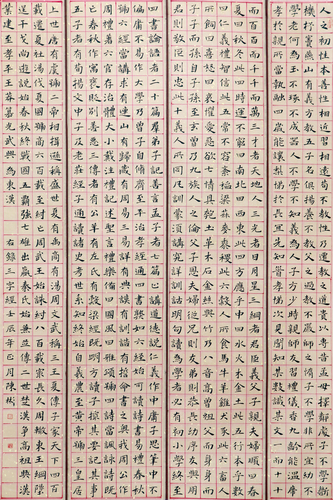 人之初性本善性相近習相遠苟不教性乃遷教之道貴以專昔孟母擇鄰處子不學斷機
杼竇燕山有義方教五子名俱揚養不教父之過教不嚴師之惰子不學非所宜幼不學
老何為玉不琢不成器人不學不知義為人子方少時親師友習禮儀香九齡能溫席孝
於親所當執融四歲能讓梨弟於長宜先知首孝弟次見聞知某數識某文一而十十
而百百而千千而萬三才者天地人三光者日月星三綱者君臣義父子親夫婦順曰春
夏曰秋冬此四時運不窮曰南北曰西東此四方應乎中曰水火木金土此五行本乎數
曰仁義禮智信此五常不容紊稻粱菽麥黍稷此六穀人所食馬牛羊雞犬豕此六畜人
所飼曰喜怒曰哀懼愛惡欲七情具匏土革木石金絲與竹乃八音高曾祖父而身身
而子子而孫自子孫至玄曾乃九族人之倫父子恩夫婦從兄則友弟則恭長幼序友與朋
君則敬臣則忠此十義人所同凡訓蒙須講究詳訓詁明句讀為學者必有初小學終至
四書論語者二十篇群弟子記善言孟子者七篇止講道德說仁義作中庸子思筆中不
偏庸不易作大學乃曾子自修齊至平治孝經通四書熟如六經始可讀詩書易禮春秋
號六經當講求有連山有歸藏有周易三易詳有典謨有訓誥有誓命書之奧我周公作
周禮著六官存治體大小戴註禮記述聖言禮樂備曰國風曰雅頌號四詩當諷詠詩既
亡春秋作寓褒貶別善惡三傳者有公羊有左氏有穀梁經既明方讀子撮其要記其事
五子者有荀揚文中子及老莊經子通讀諸史考世系知終始自羲農至黃帝號三皇居
上世唐有虞號二帝相揖遜稱盛世夏有禹商有湯周文武稱三王夏傳子家天下四百
載遷夏社湯伐夏國號商六百載至紂亡周武王始誅紂八百載最長久周轍東王綱墜
逞干戈尚遊說始春秋終戰國五霸強七雄出嬴秦氏始兼並傳二世楚漢爭高祖興漢
業建至孝平王莽篡光武興為東漢
右錄三字經壬辰年正月陳彬